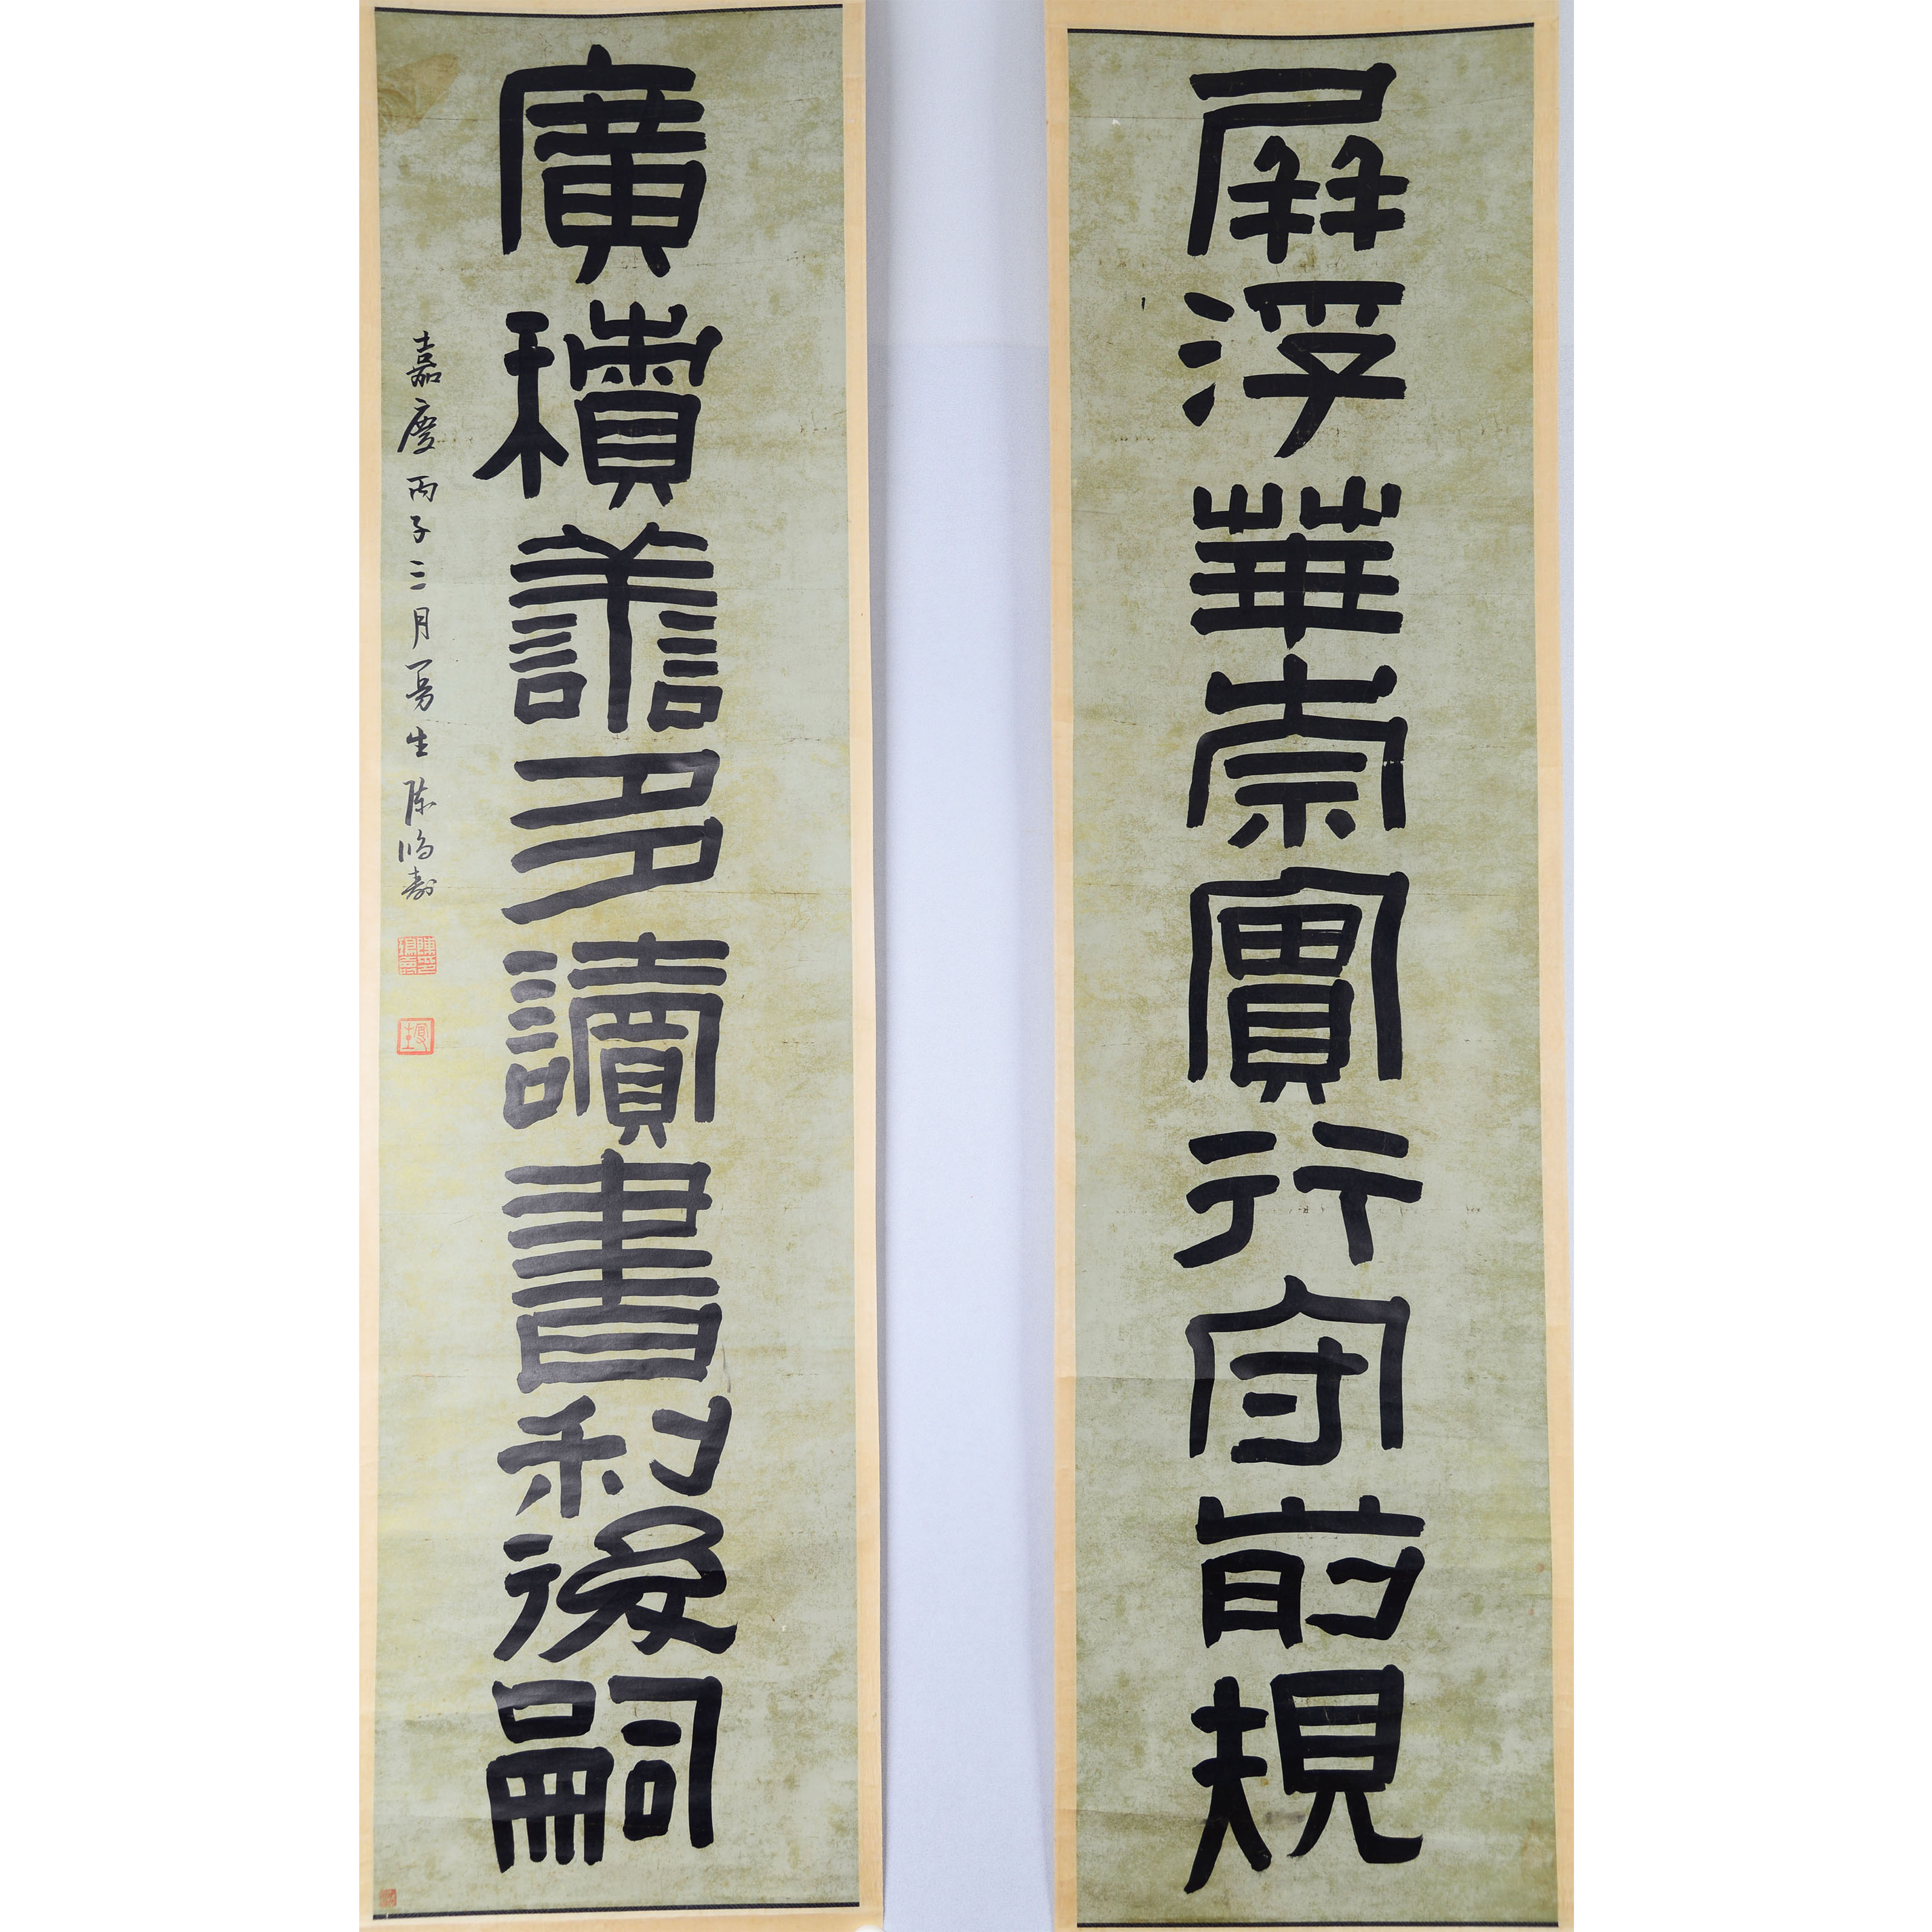 屏浮華崇實行守前規
廣積善多讀書利後嗣
嘉慶丙子三月曼生陳鴻壽